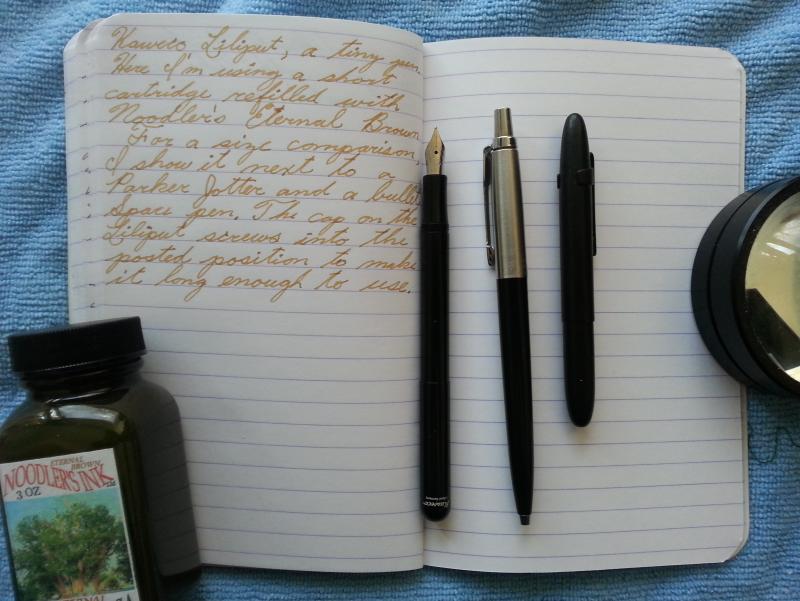 Kaweco Liliput, a tiny pen.
Here I'm using a short
cartridge refilled with
Noodler's Eternal Brown.
For a size comparison,
I show it next to a
Parker Jotter and a bullet
Space pen. The cap on the
Liliput screws into the
posted position to make
it long enough to use.
ETERNAL
BROWN
NOODLER'S INK
3 OZ
ETERNAL
Kaweco